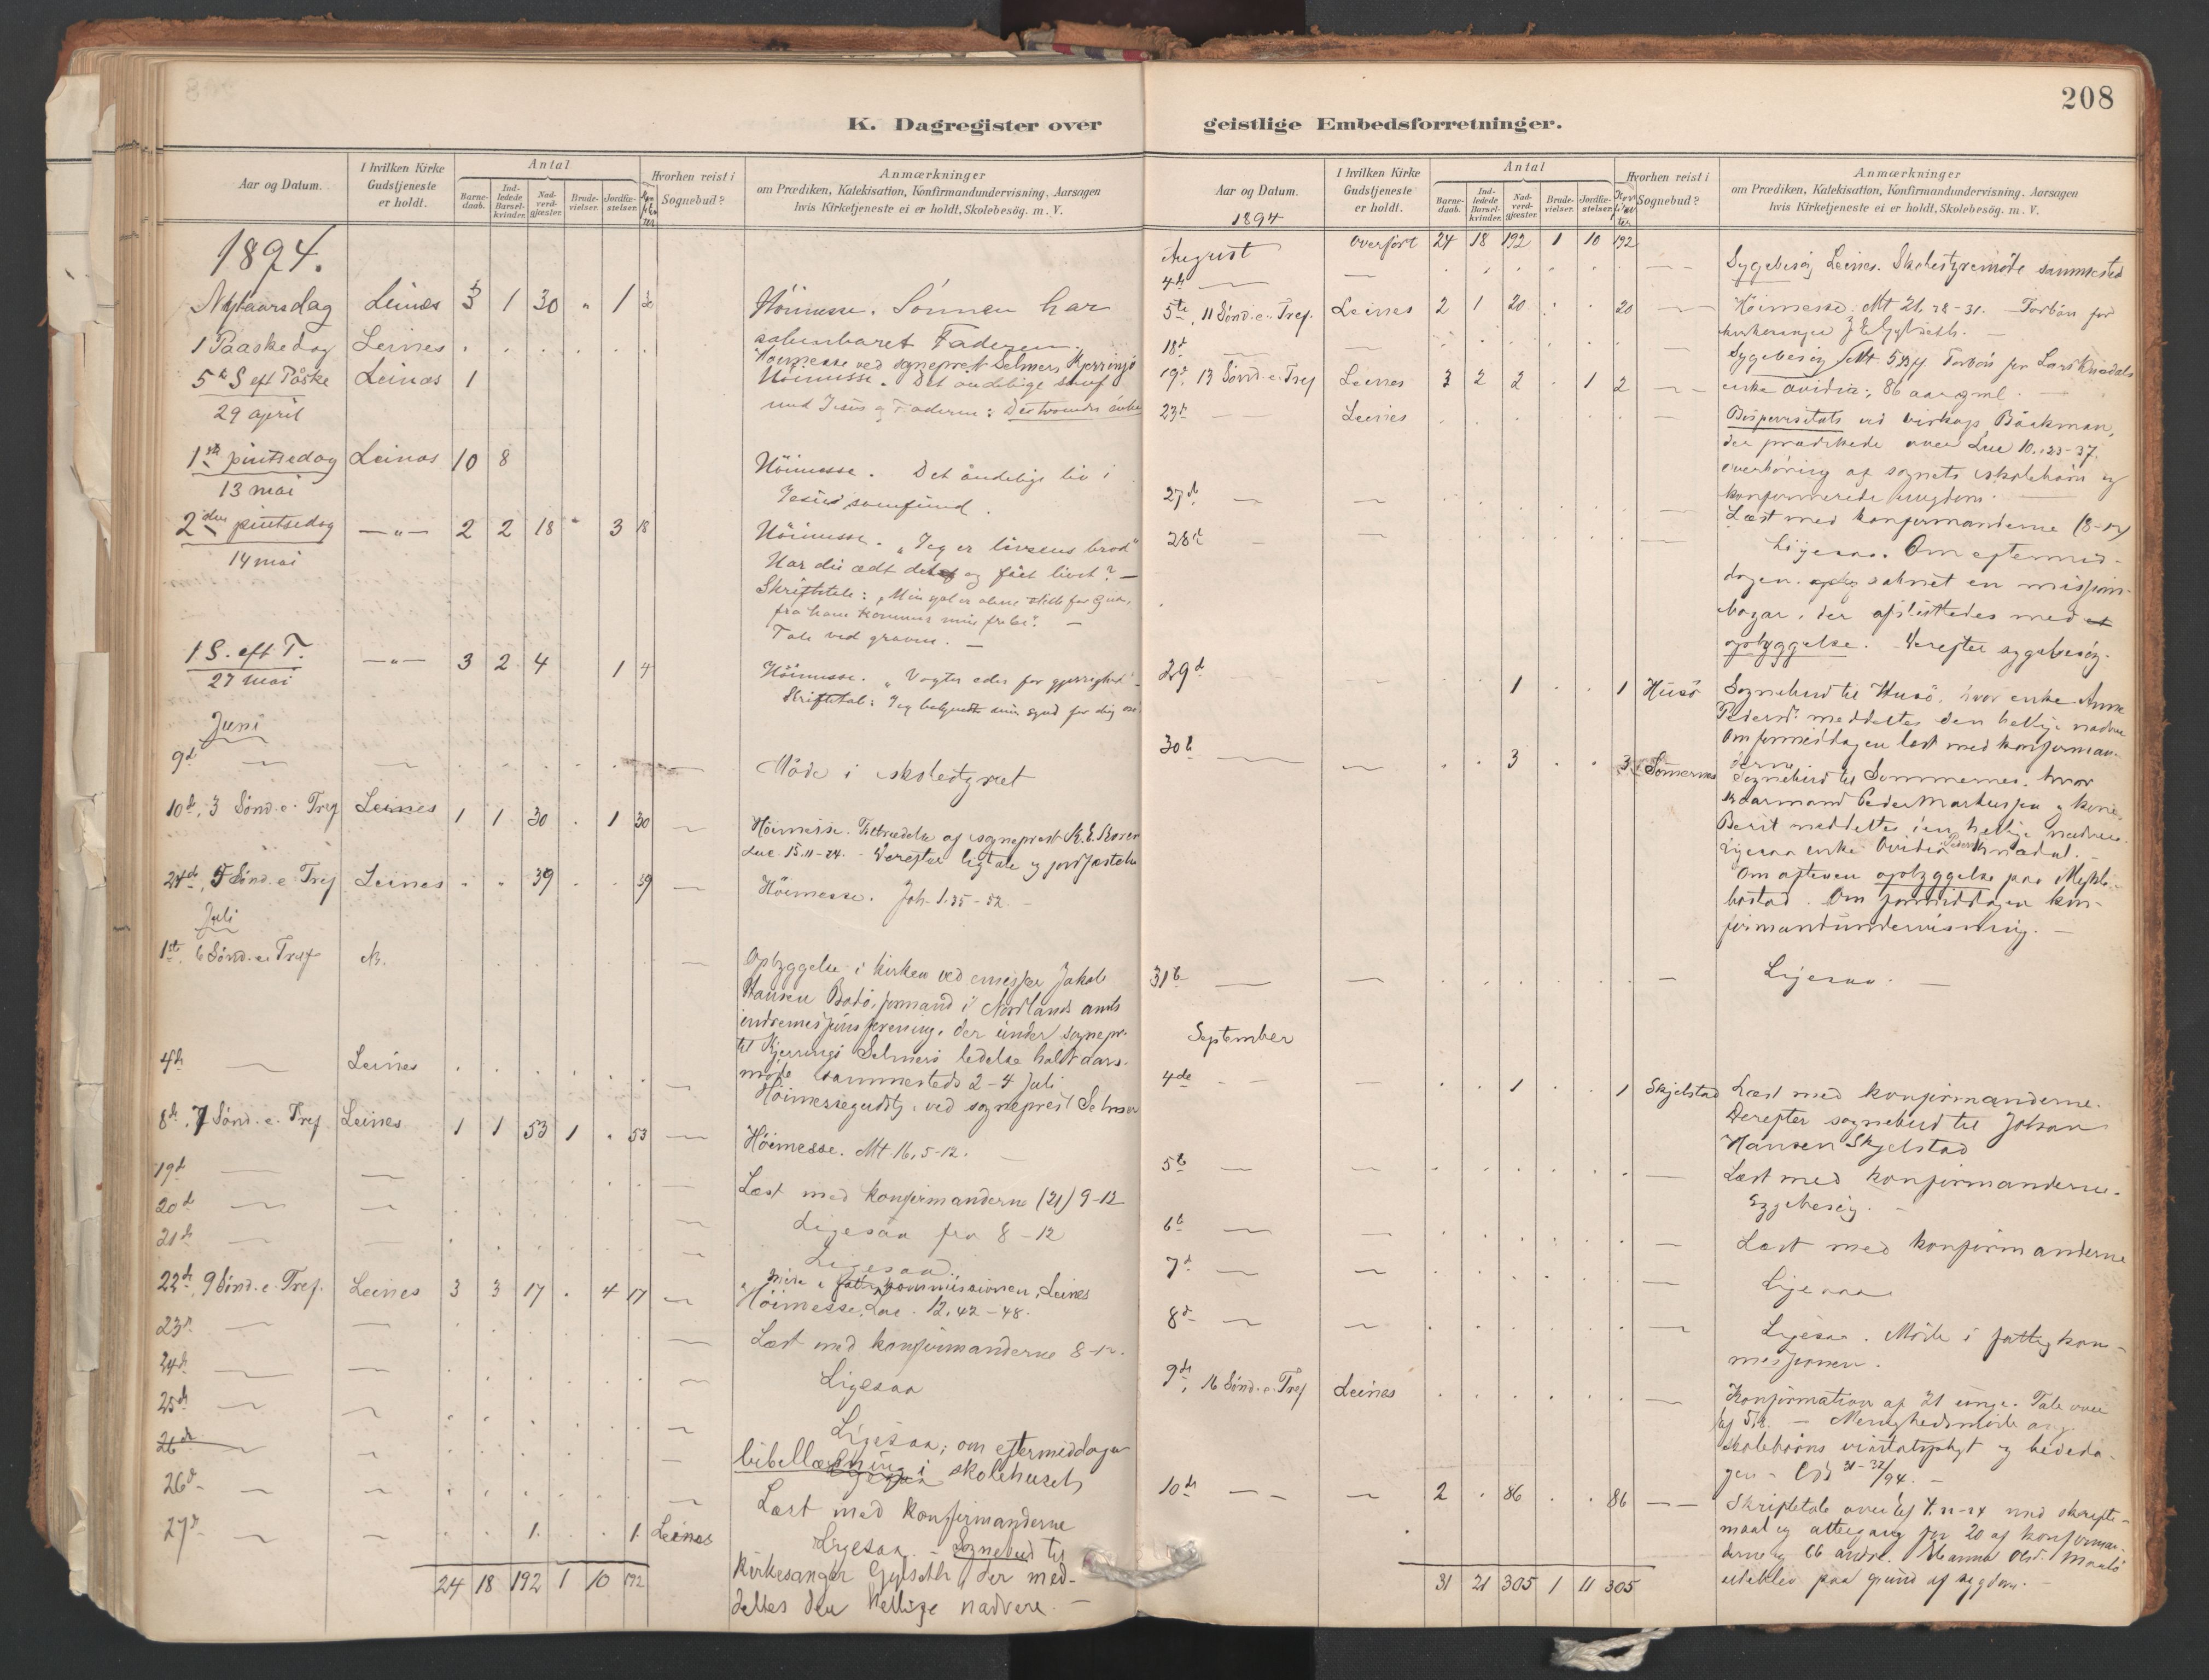 208
K. Dagregister over geistlige Embedsforretninger.
Aar og Datum.
I hvilken Kirke Gudstjeneste er holdt.
Antal
Barne-daab.
Ind-ledede Barsel-kvinder.
Nad-verd-gjæster.
Brude-vielser.
Jordfæ-stelser.
Hvorhen reist i Sognebud?
Anmærkninger
om Prædiken, Katekisation, Konfirmandundervisning, Aarsagen
hvis Kirketjeneste ei er holdt, Skolebesøg. m. V.
1894.
Nytaarsdag Leines 3 1 30 " 1 Höimesse. Sönnen har
aabenbaret Faderen.
1 Paaskedag Leines . . . . . Höimesse ved sogneprest Selmer, Kjerringö
5te S eft Påske Leines 1 Höimesse. Det åndelige
29 april med Jesus og Faderen:
1ste pintsedag Leines 10 8 Höimesse. Det åndelige liv i
13 mai Jesus samfund.
2den pintsedag — " — 2 2 18 " 3 18 Höimesse. "Jeg er livsens bröd"
14 mai Har du ædt det og fået livet? —
Skriftetale:
fra ham kommer min frelse". —
Tale ved graven. —
1 S. eft T. — " — 3 2 4 1 4 Höimesse. "Vogter eder for gjerrighed"
27 mai Skriftetal: Jeg bekjendte min synd for dig
Juni
9de — — Möde i skolestyret
10de, 3 Sönd. e. Tref Leines 1 1 30 . 1 30 — Höimesse. Tiltrædelse af sogneprest
Luc 15.11-24. - Derefter ligtale og jordfæstelse
24de, 5 Sönd. e. Tref Leines . . 39 . . 39 — Höimesse. Joh. 1.35-52. —
Juli
1ste, 6 Sönd. e. Tref Opbyggelse i kirken ved Jakob
Hansen Bodö, formand i Nordlands amts
indremisjonsforening, der under sognepr.
til Kjerringö Selmers ledelse holdt aars-
möde sammesteds 2-4 Juli
4de — Leines . . . . . . — Höimessegudstj. ved sogneprest Selmer
8de, 7 Sönd. e. Tref Leines 1 1 53 1 . 53 — Höimesse. Mt 16, 5-12.
19de — — Læst med konfirmanderne (21) 9-12
20de — — Ligesaa fra 8-12
21de — — Ligesaa.
Möde i fattigkommissionen, Leines
22de, 9 Sönd. e. Tref. Leines 3 3 17 . 4 17 — Höimesse, Luc. 12, 42-48.
23de — — Læst med konfirmanderne 8-12.
24de — — Ligesaa
25de — — Ligesaa; om eftermiddagen
26de — bibellæsning i skolehuset
26de — — Læst med konfirmanderne
27de — — . . 1 . . 1 Leines Ligesaa. — Sognebud til
Kirkesanger Gylseth, der med-
deltes den hellige nadvere. —
24 18 192 1 10 192
Aar og Datum.
1894
I hvilken Kirke Gudstjeneste er holdt.
Antal
Barne-daab.
Ind-ledede Barsel-kvinder.
Nad-verd-gjæster.
Brude-vielser.
Jordfæ-stelser.
Hvorhen reist i Sognebud?
Anmærkninger
om Prædiken, Katekisation, Konfirmandundervisning, Aarsagen
hvis Kirketjeneste ei er holdt, Skolebesög. m. V.
August Overfört 24 18 192 1 10 192
4de — — Sygebesög Leines. Skolestyremöde sammested
5te, 11 Sönd. e. Tref. Leines 2 1 20 . . 20 — Höimesse. Mt 21, 28-31. Forbön for
kirkesanger Gylseth. —
18de — — Sygebesög
19de, 13 Sönd. e. Tref Leines 3 2 2 . 1 2 — Forbön for Lars
enke Ovidia, 86 aar gml. —
23de — Leines Bispevisitats ved biskop Böckman,
der prædikede over Luc 10, 23-37.
Overhöring af sognets skolebörn og
konfirmerede ungdom.
27de — — Læst med konfirmanderne (8-12)
28de — — Ligesaa. Om eftermid-
dagen en missions-
bazar, der afsluttedes med et
opbyggelse. Derefter sygebesög.
29de 1 . . 1 Husö Sognebud til Husö, hvor enke Anne
Pedersd. meddeltes den hellige nadvere
Om formiddagen læst med konfirman-
derne.
30te — — 3 . . 3 Sömernes Sognebud til Sommernes, hvor
kaarmand Peder Markussen og kone
Berit meddeltes den hellige nadvere.
Ligesaa enke Ovidia
Om aftenen opbyggelse paa
bostad. Om formiddagen kon-
firmandundervisning. —
31te — — Ligesaa. —
September
4de — — 1 . . 1 Skjelstad Læst med konfirmanderne.
Derefter sognebud til Johan
Hansen Skjelstad
5te — — Læst med konfirmanderne.
Sygebesög. —
6te — — Læst med konfirmanderne
7de — — Ligesaa
8de — — Ligesaa. Möde i fattigkom-
misjonen.
9de, 16 Sönd. e. Tref Leines Konfirmation af 21 unge. Tale over
— Menighedsmöde ang.
skolebörns og bededa-
gen
10de — — 2 . 86 . . 86 — Skriftetale over 4. 21-24 med skrifte-
maal og altergang for 20 af konfirman-
derne og 66 andre. Hanna
udeblev paa grund af sygdom. —
31 21 305 1 11 305